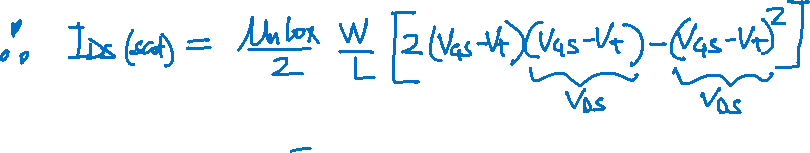 ∴ I_DS(sat) = μnCox/2 W/L [2(V_GS-V_t)(V_GS-V_t)-(V_GS-V_t)^2]
V_DS V_DS
=